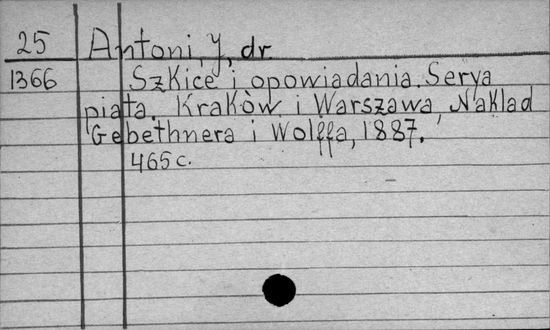 25 Antoni, J, dr.
1366 Szkice i opowiadania. Serya
piąta. Kraków i Warszawa, Nakład
Gebethnera i Wolffa, 1887.
465 c.